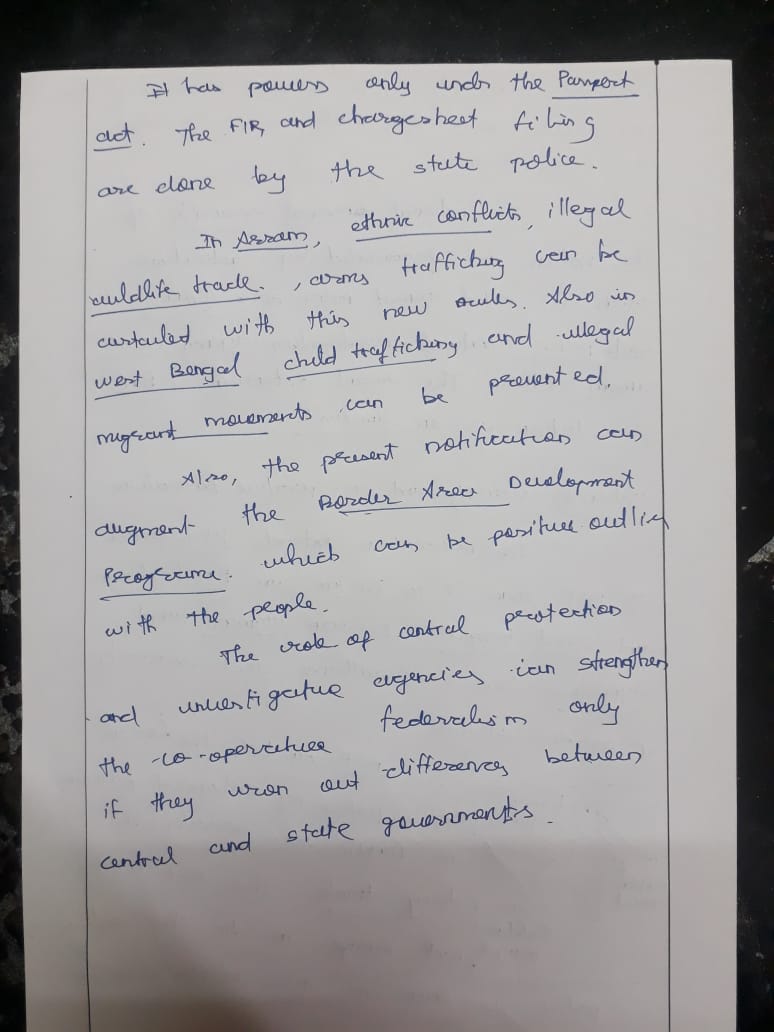 It has powers only under the Passport
act. The FIR and chargesheet filing
are done by the state police.
In Assam, ethnic conflicts, illegal
wildlife trade, arms trafficking can be
curtailed with this new rules. Also in
west Bengal child trafficking and illegal
migrant movements can be prevented.
Also, the present notification can
augment the Border Area Development
Programme. which can be positive
with the people.
The role of central protection
and investigative agencies can strengthen
the co-operative federalism only
if they iron out differences between
central and state governments.